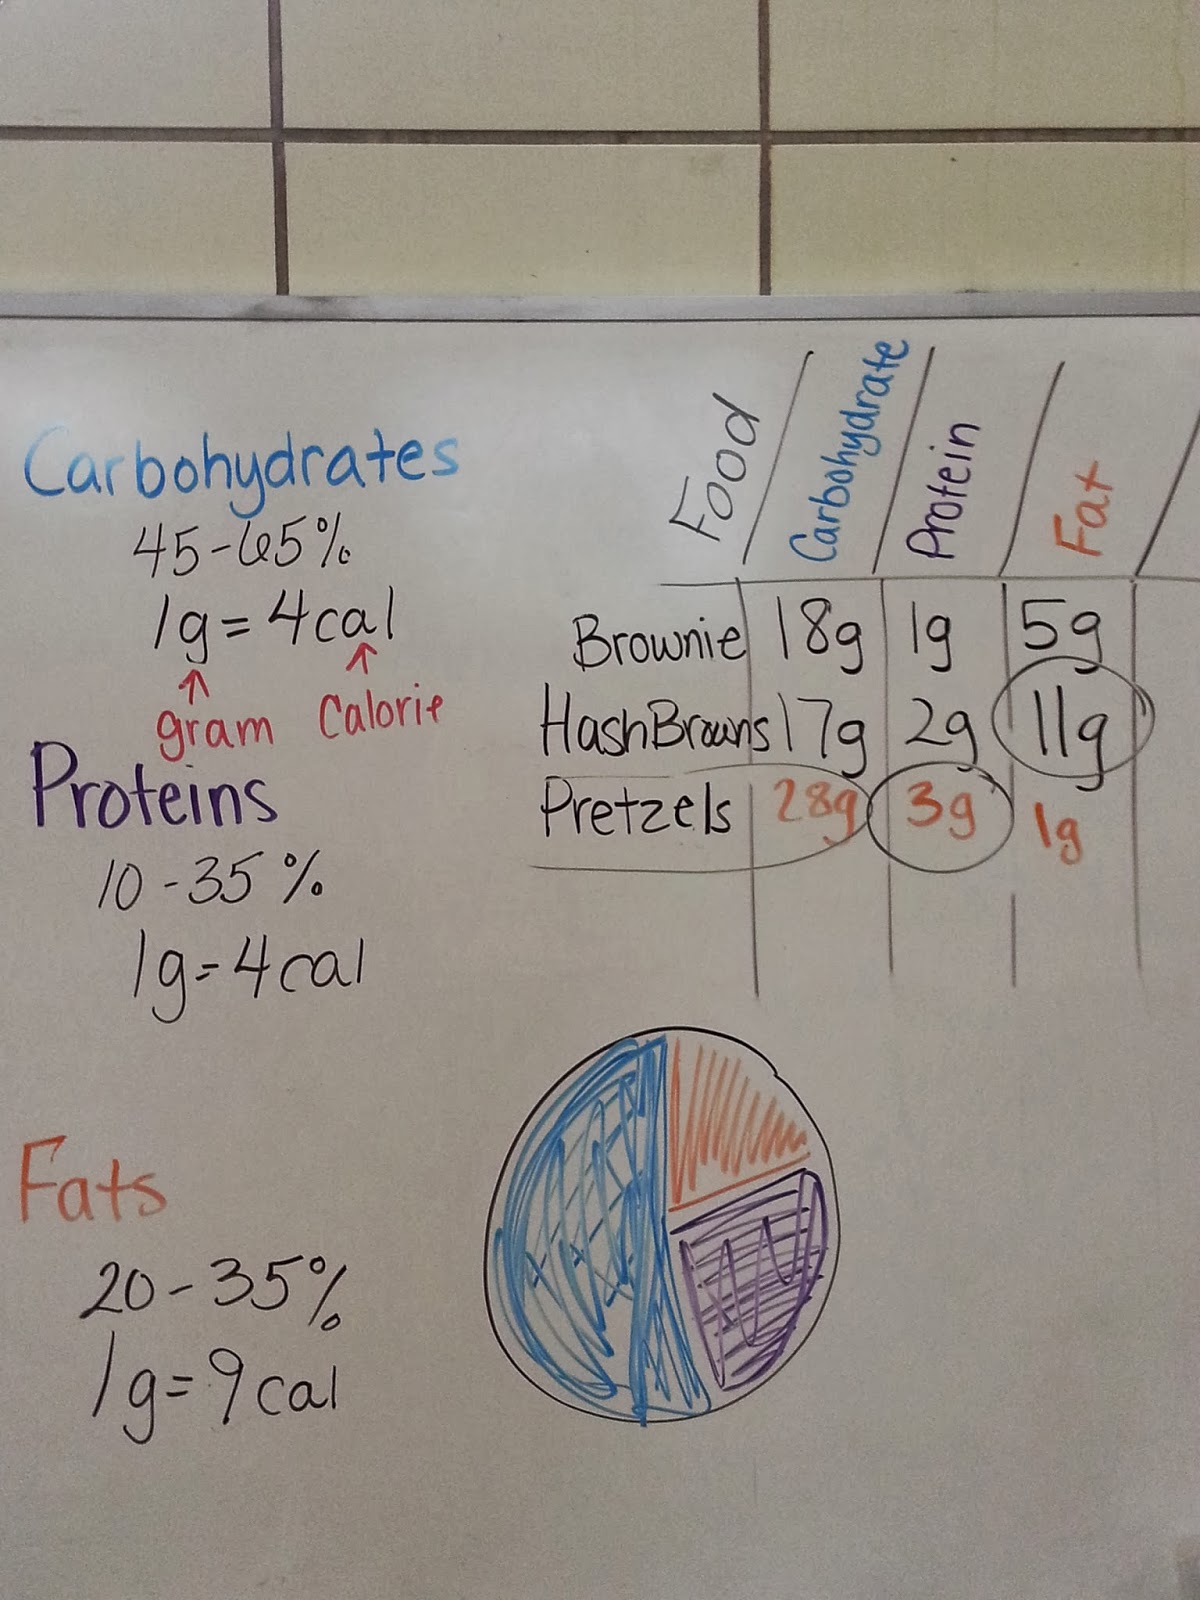 Carbohydrates
45-65%
1g = 4cal
gram Calorie
Proteins
10-35%
1g=4cal
Fats
20-35%
1g=9cal
Food Carbohydrate Protein Fat
Brownie 18g 1g 5g
HashBrowns 17g 2g 11g
Pretzels 28g 3g 1g